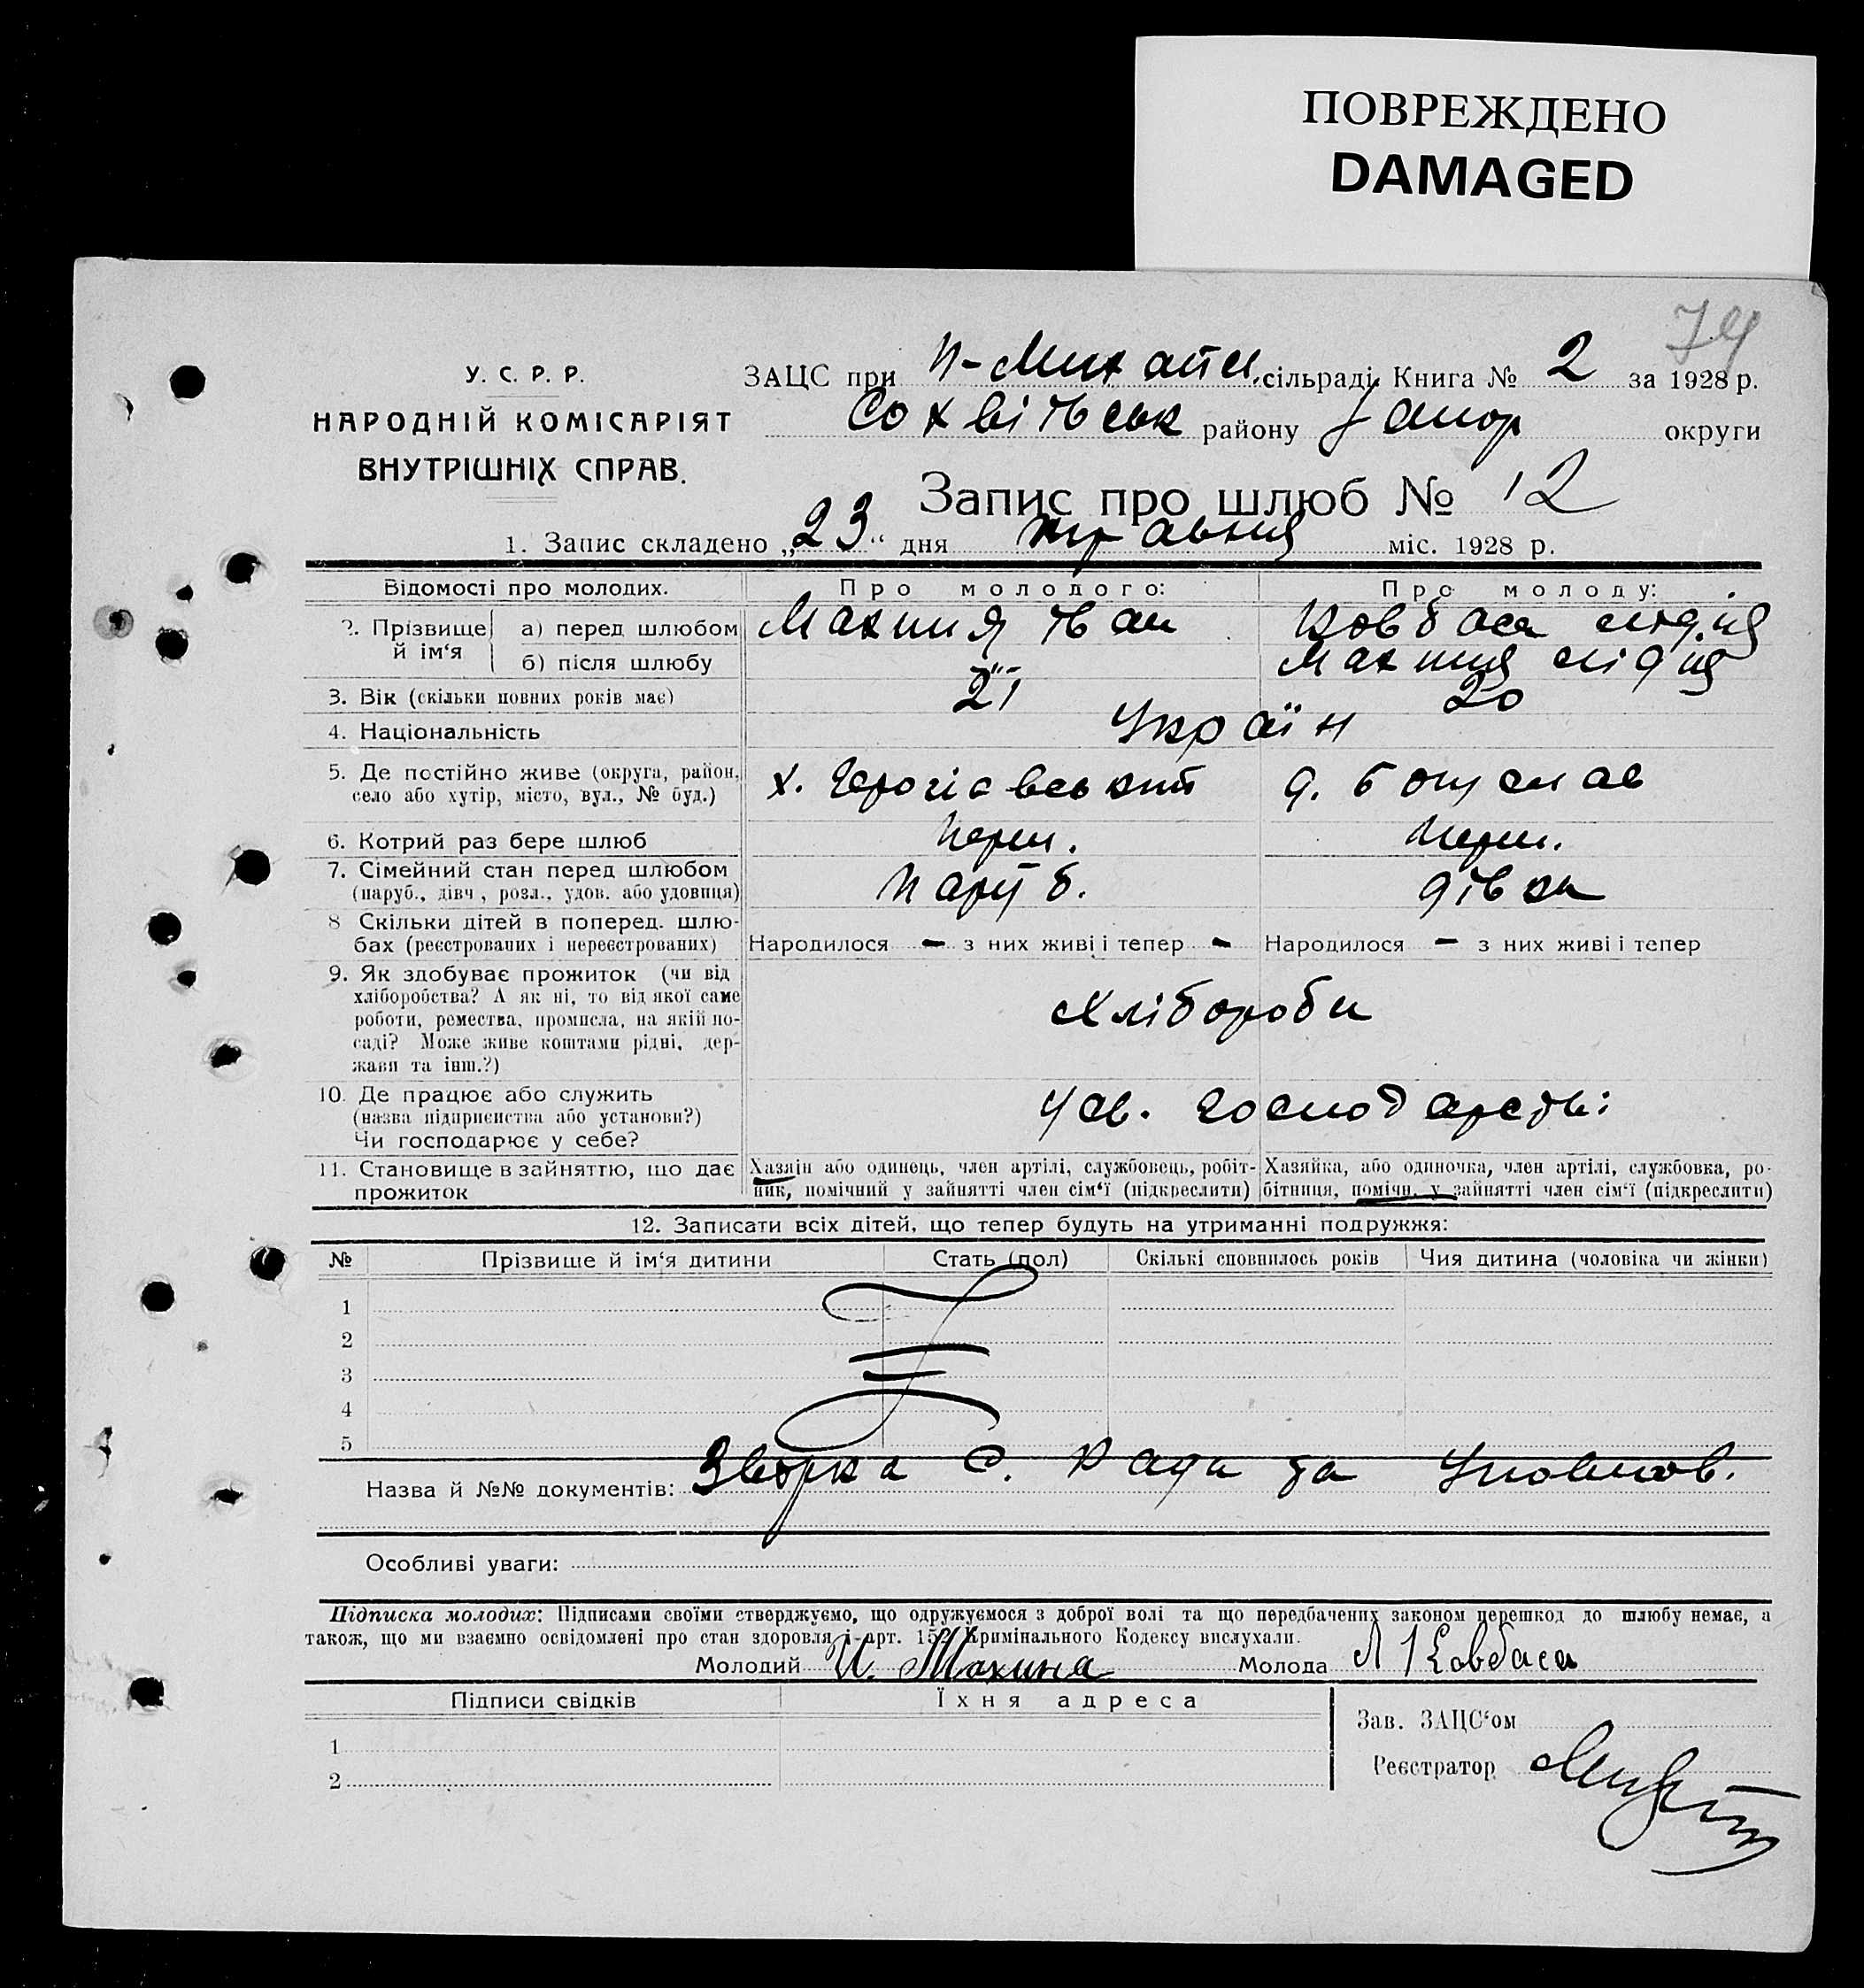 ПОВРЕЖДЕНО
DAMAGED
74
У. С. Р. Р.
НАРОДНІЙ КОМІСАРІЯТ
ВНУТРІШНІХ СПРАВ.
ЗАЦС при Н-Михайл. сільраді. Книга № 2 за 1928 р.
району Запор округи
Запис про шлюб № 12
1. Запис складено „23“ дня травня міс. 1928 р.
Відомості про молодих. Про молодого: Про молоду:
2. Прізвище й ім‘я а) перед шлюбом Махиня Іван Ковбаса Лідія
б) після шлюбу —"— Махиня Лідія
3. Вік (скільки повних років має) 21 20
4. Національність Україн
5. Де постійно живе (округа, район, село або хутір, місто, вул., № буд.) х. Георгієвський
6. Котрий раз бере шлюб перш. перш.
7. Сімейний стан перед шлюбом (паруб., дівч., розл., удов. або удовиця) Паруб. дівка
8 Скільки дітей в поперед. шлюбах (реєстрованих і нереєстрованих) Народилося — з них живі і тепер — Народилося — з них живі і тепер
9. Як здобуває прожиток (чи від хліборобства? А як ні, то від якої саме роботи, ремества, промисла, на якій посаді? Може живе коштами рідні, держави та інш.?) Хлібороби
10. Де працює або служить (назва підприєнства або установи?) Чи господарює у себе? У св. господарстві
11. Становище в зайняттю, що дає прожиток Хазяїн або одинець, член артілі, службовець, робітник, помічний у зайнятті член сім‘ї (підкреслити) Хазяйка, або одиночка, член артілі, службовка, робітниця, помічн. у зайнятті член сім‘ї (підкреслити)
12. Записати всіх дітей, що тепер будуть на утриманні подружжя:
№ Прізвище й ім‘я дитини Стать (пол) Скількі сповнилось років Чия дитина (чоловіка чи жінки)
1
2
3
4
5
Назва й №№ документів: С. Ради та
Особливі уваги:
Підписка молодих: Підписами своїми стверджуємо, що одружуємося з доброї волі та що передбачених законом перешкод до шлюбу немає, а
також, що ми взаємно освідомлені про стан здоровля і арт. 152 Кримінального Кодексу вислухали.
Молодий И. Махина Молода Л Ковбаса
Підписи свідків Їхня адреса
Зав. ЗАЦС‘ом
1
Реєстратор
2